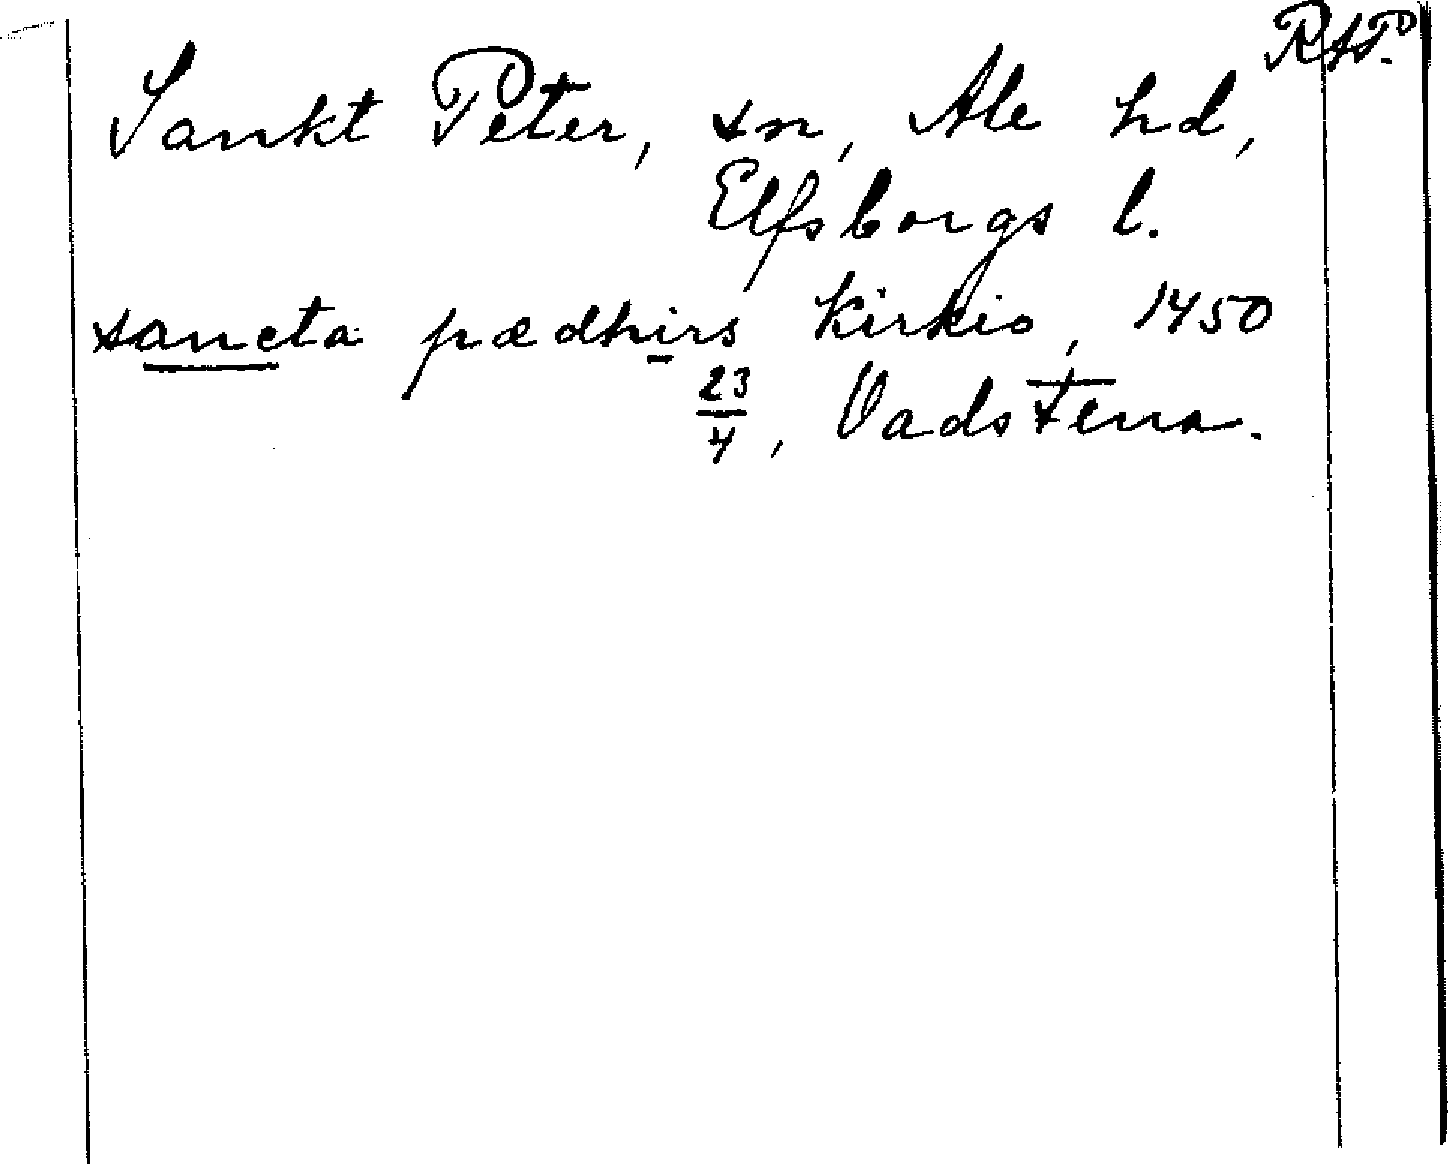 RAP.
Sankt Peter, sn, Ale hd,
Elfsborgs l.
sancta pædhirs kirkio, 1450
23/4, Vadstena.